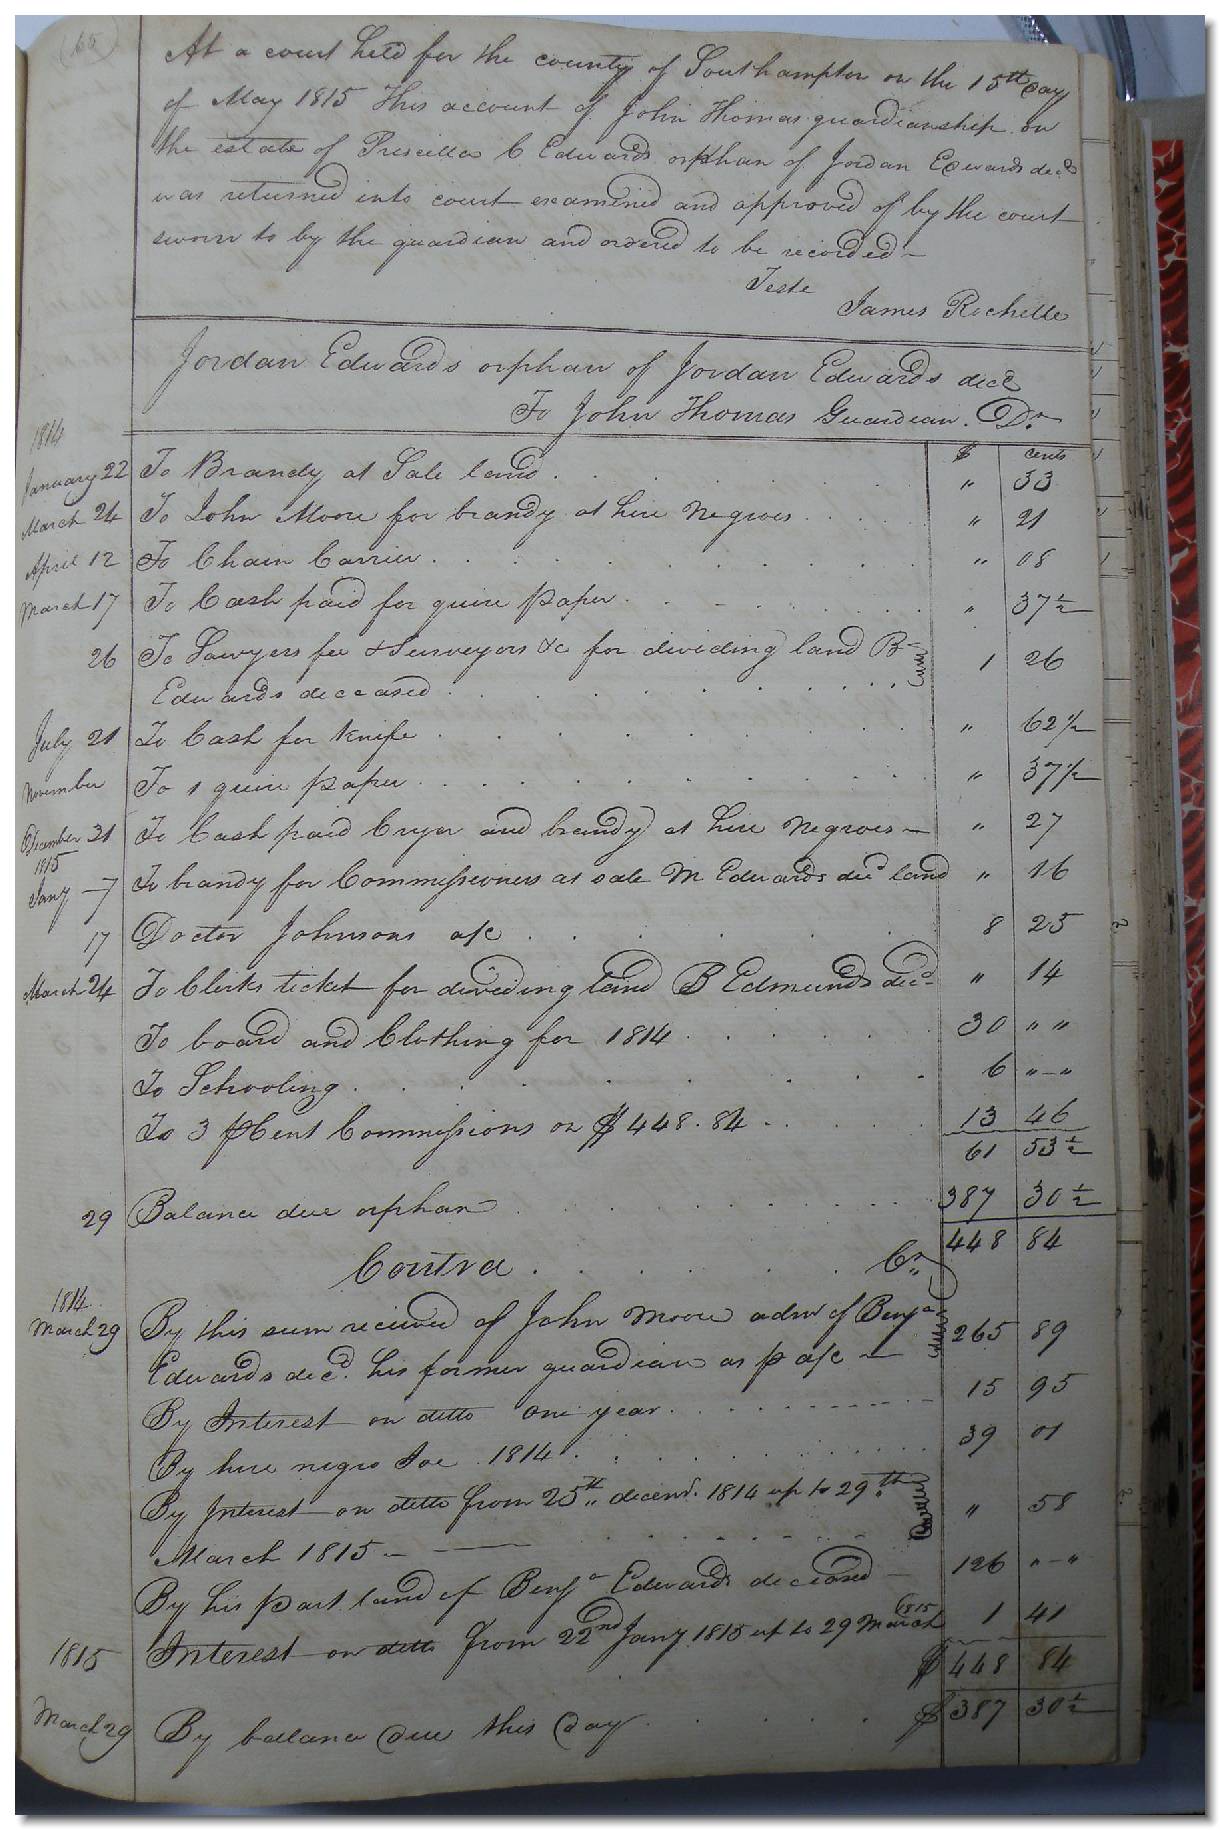 (65)
At a court held for the county of Southampton on the 15th day
of May 1815 This account of John Thomas guardianship on
the estate of Priscilla C Edwards orphan of Jordan Edwards decd
was returned into court examined and approved of by the court
sworn to by the guardian and ordered to be recorded –
Teste
James Rochelle
Jordan Edwards orphan of Jordan Edwards decd
To John Thomas Guardian. Dr
1814 $ cents
January 22 To Brandy at Sale land " 33
March 24 To John Moore for brandy at hire Negroes " 21
April 12 To Chain Carrier " 08
March 17 To Cash paid for quire paper " 37 1/2
26 To Lawyers fee & Surveyors &c for dividing land B
Edwards deceased 1 26
July 21 To Cash for knife " 62 1/2
November To 1 quire paper " 37 1/2
December 31 To Cash paid Cryer and brandy at hire Negroes – " 27
1815
Jany 7 To brandy for Commissioners at sale M Edwards decd land " 16
17 Doctor Johnsons a/c 8 25
March 24 To Clerks ticket for dividing land B Edmunds decd " 14
To board and Clothing for 1814 30 " "
To Schooling 6 "–"
To 3 pCent Commissions on $448.84 13 46
61 53 1/2
29 Balance due orphan 387 30 1/2
448 84
Contra Cr
1814
March 29 By this sum received of John Moore admr of Benja
Edwards decd. his former guardian as p a/c – 265 89
By Interest on ditto one year 15 95
By hire negro Joe 1814 39 01
By Interest on ditto from 25th decemr. 1814 up to 29th
March 1815 – " 58
By his part land of Benja Edwards deceased – 126 "–"
Interest on ditto from 22nd Jany 1815 up to 29 March 1815 1 41
1815 $448 84
March 29 By ballance due this day $387 30 1/2